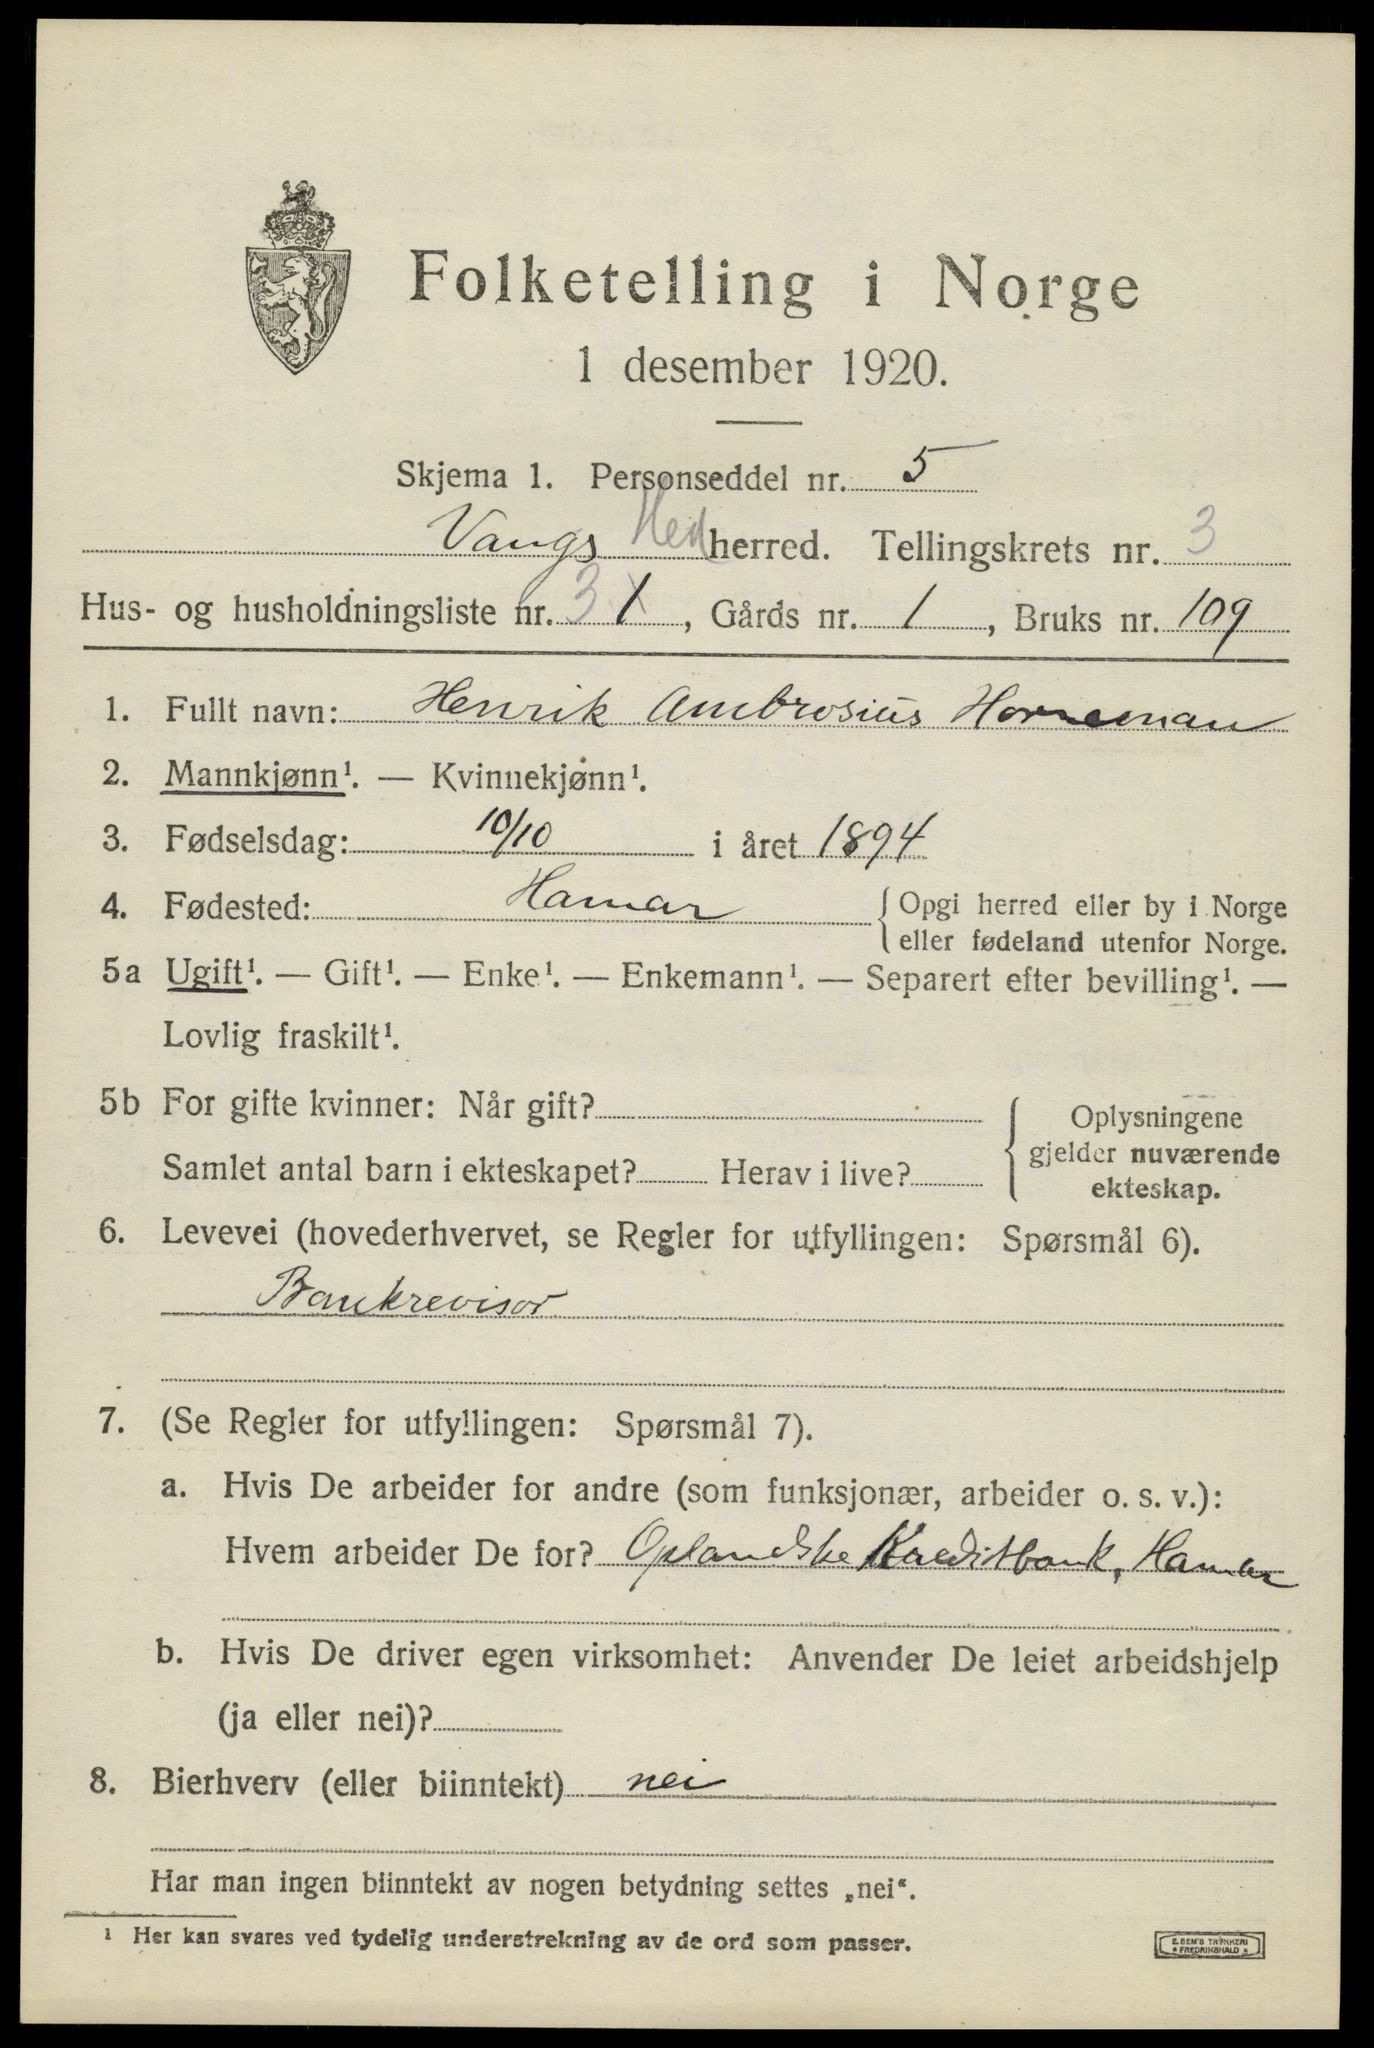 Folketelling i Norge
1 desember 1920.
Skjema 1. Personseddel nr. 5
Vangs Hed herred. Tellingskrets nr. 3
Hus- og husholdningsliste nr. 3 1, Gårds nr. 1, Bruks nr. 109
1. Fullt navn: Henrik Ambrosius Horneman
2. Mannkjønn¹. — Kvinnekjønn¹.
3. Fødselsdag: 10/10 i året 1894
4. Fødested: Hamar { Opgi herred eller by i Norge
eller fødeland utenfor Norge.
5a Ugift¹. — Gift¹. — Enke¹. — Enkemann¹. — Separert efter bevilling¹. —
Lovlig fraskilt¹.
5b For gifte kvinner: Når gift? { Oplysningene
gjelder nuværende
ekteskap.
Samlet antal barn i ekteskapet? Herav i live?
6. Levevei (hovederhvervet, se Regler for utfyllingen: Spørsmål 6).
Bankrevisor
7. (Se Regler for utfyllingen: Spørsmål 7).
a. Hvis De arbeider for andre (som funksjonær, arbeider o. s. v.):
Hvem arbeider De for? Oplandske Kreditbank, Hamar
b. Hvis De driver egen virksomhet: Anvender De leiet arbeidshjelp
(ja eller nei)?
8. Bierhverv (eller biinntekt) nei
Har man ingen biinntekt av nogen betydning settes „nei“.
¹ Her kan svares ved tydelig understrekning av de ord som passer.
E. SEM'S TRYKKERI
FREDRIKSHALD